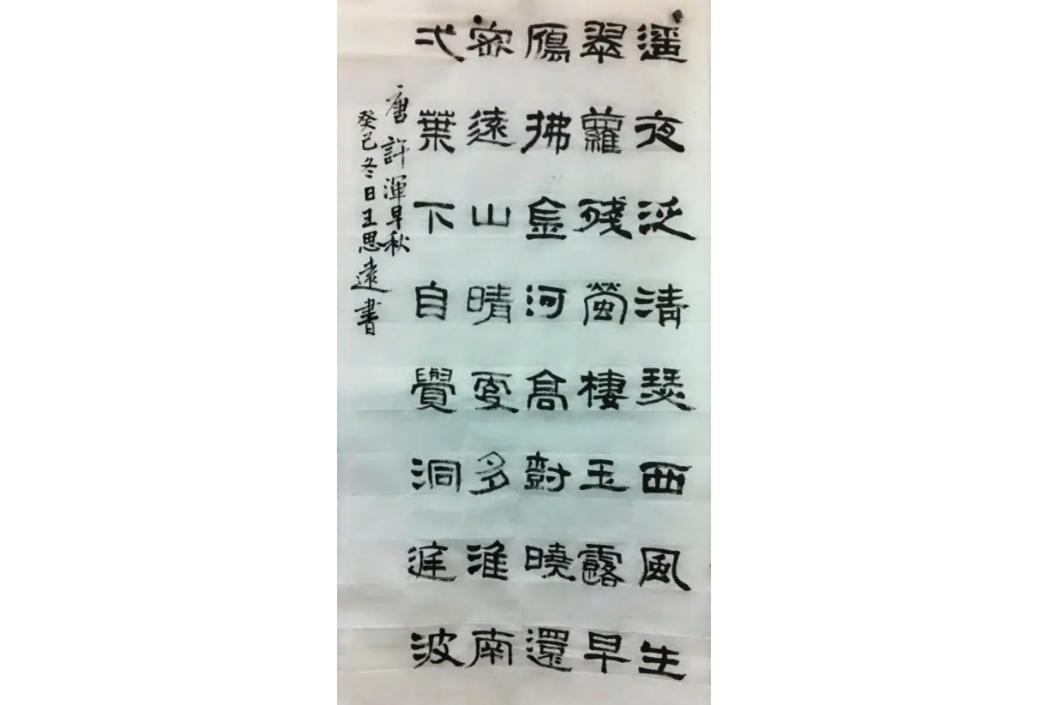 遥夜泛清瑟西風生
翠蘿殘螢棲玉露早
鴈拂金河高對曉還
密遠山晴更多淮南
弌葉下自覺洞庭波
唐許渾早秋
癸巳冬日王思遠書